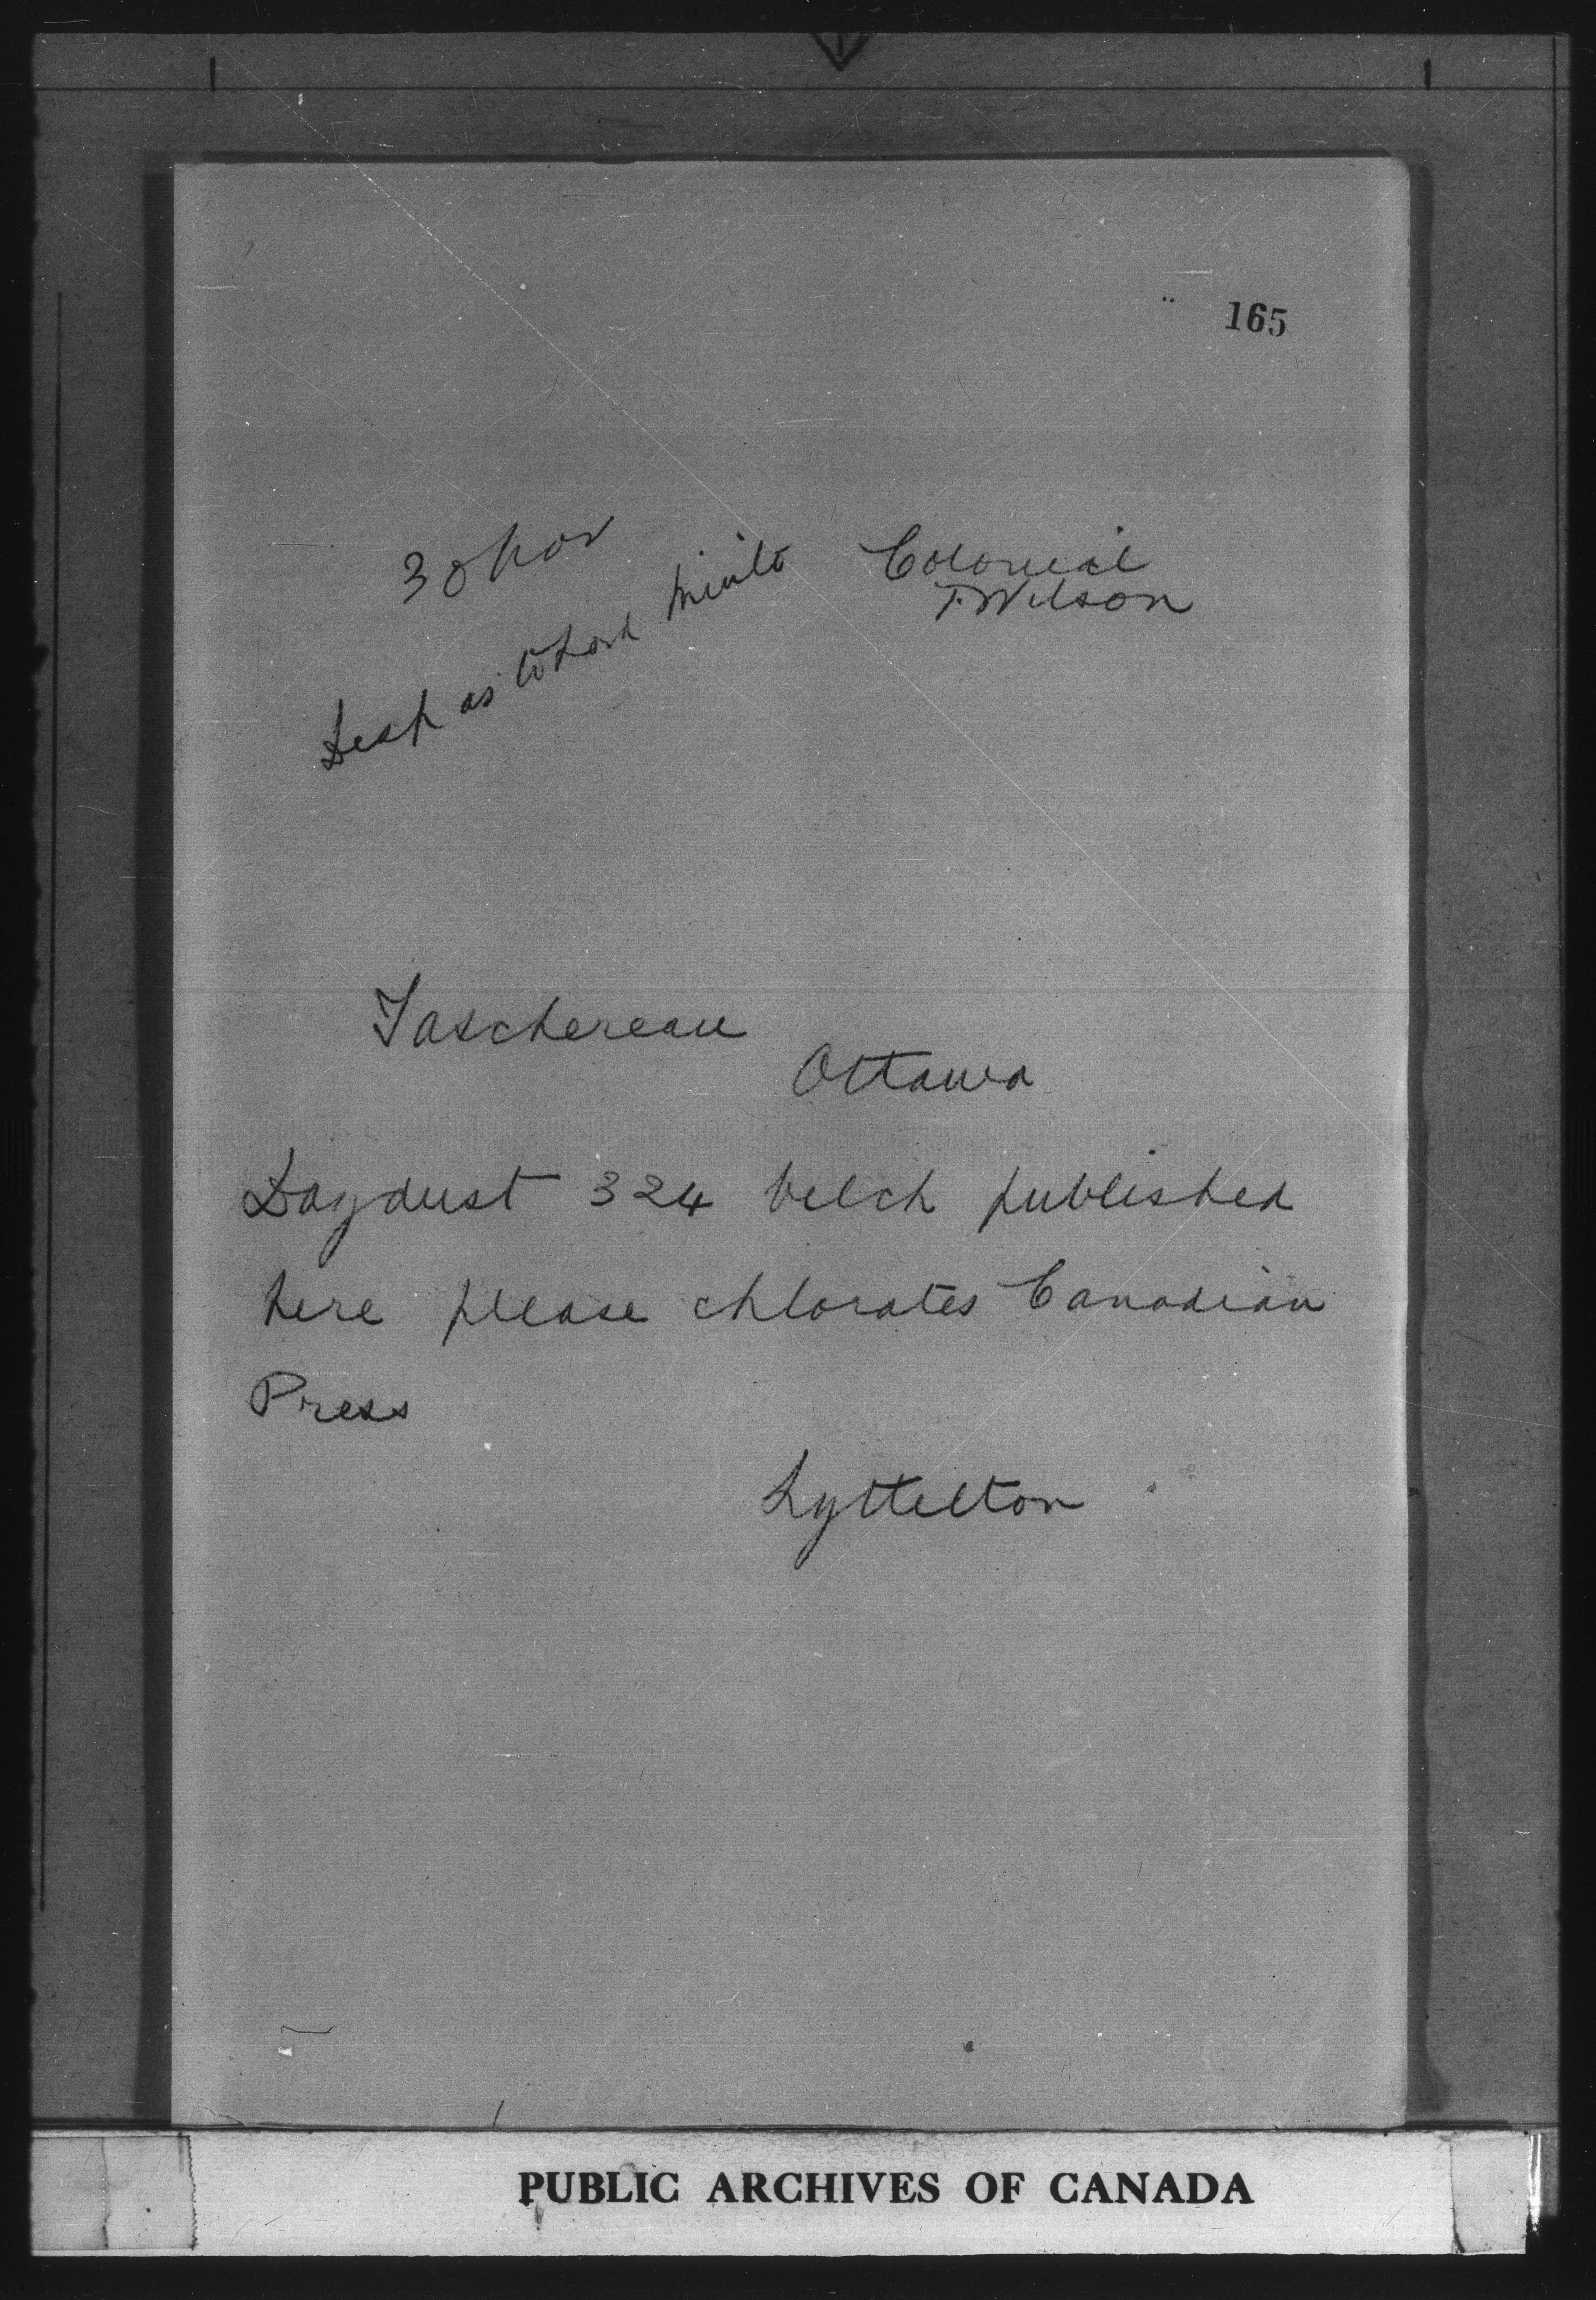 165
30 Nov
Colonial
T. Wilson
Desp as to Lord Minto
Taschereau
Ottawa
Daydust 324 belch published
here please chlorates Canadian
Press
Lyttelton
PUBLIC ARCHIVES OF CANADA